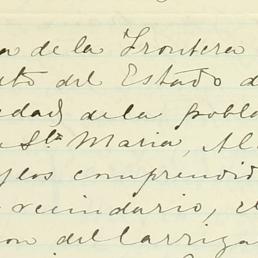 a de la Frontera
uto del Estado d
edad de la pobla
a Sta Maria, Al
flos comprendid
vecindario, el
on del Carriza